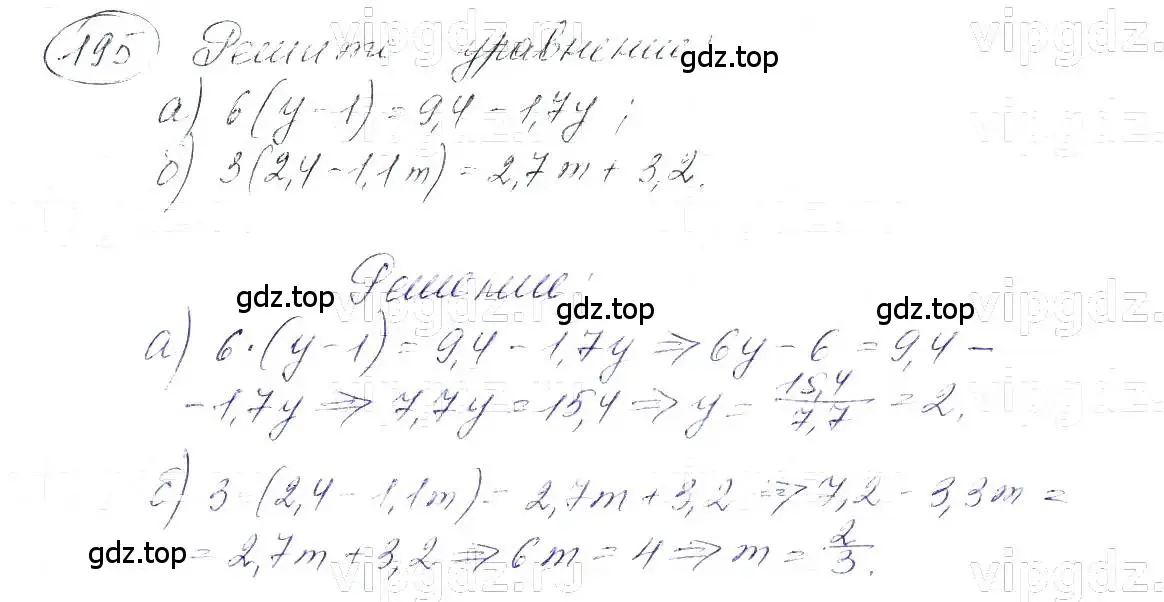 195 Решите уравнение:
а) 6(y - 1) = 9,4 - 1,7y;
б) 3(2,4 - 1,1m) = 2,7m + 3,2.
Решение:
а) 6·(y - 1) = 9,4 - 1,7y ⇒ 6y - 6 = 9,4 -
- 1,7y ⇒ 7,7y = 15,4 ⇒ y = 15,4/7,7 = 2.
б) 3·(2,4 - 1,1m) = 2,7m + 3,2 ⇒ 7,2 - 3,3m =
= 2,7m + 3,2 ⇒ 6m = 4 ⇒ m = 2/3.
gdz.top
gdz.top
gdz.top
gdz.top
gdz.top
vipgdz.ru
vipgdz.
vipgdz.
vipgdz.ru
vipgdz.
vipgdz.ru
vipgdz.